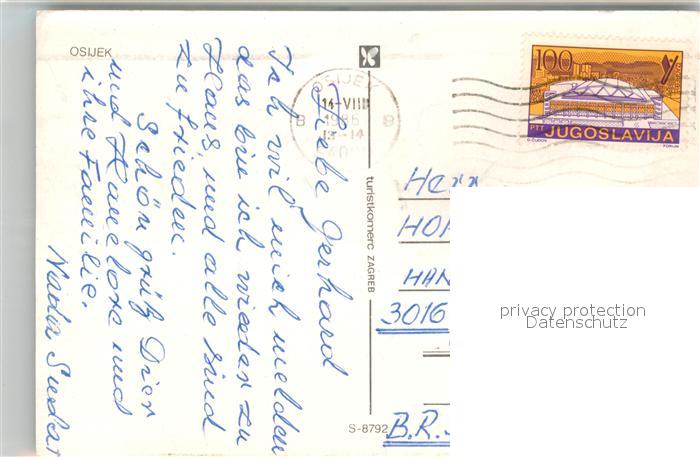 OSIJEK
Liebe Gerhard
Ich wil mich melden
das bin ich wieder zu
Haus, und alle sind
zufrieden.
Schön grüß Dier
und Hanelore und
ihre Familie.
Nada
OSIJEK
14-VIII
1986
13-14
B B
100
PTT JUGOSLAVIJA
FORUM
turistkomerc ZAGREB
S-8792
Herr
HAN
3016
B.R.
privacy protection
Datenschutz